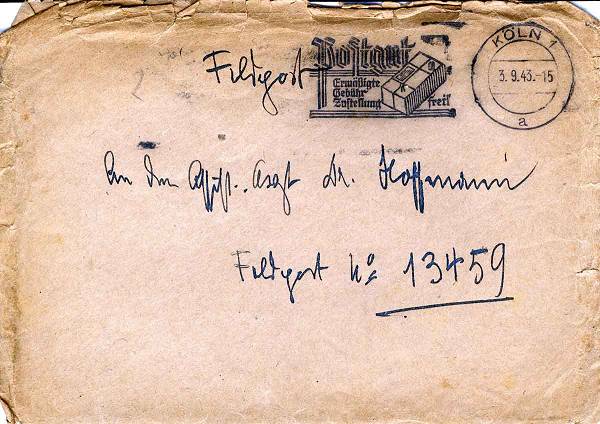 Feldpost
Postgut
Ermäßigte
Gebühr
Zustellung frei!
KÖLN 1
3.9.43.-15
a
An den Assist.. Arzt Dr. Hoffmann
Feldpost No 13459